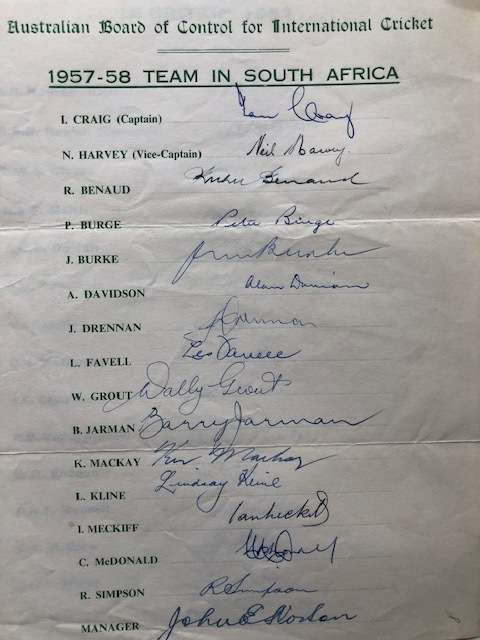 Australian Board of Control for International Cricket
1957-58 TEAM IN SOUTH AFRICA
I. CRAIG (Captain) Ian Craig
N. HARVEY (Vice-Captain) Neil Harvey
R. BENAUD Richie Benaud
P. BURGE Peter Burge
J. BURKE Jim Burke
A. DAVIDSON Alan Davidson
J. DRENNAN J Drennan
L. FAVELL Les Favell
W. GROUT Wally Grout
B. JARMAN Barry Jarman
K. MACKAY Ken Mackay
L. KLINE Lindsay Kline
I. MECKIFF Ian Meckiff
C. McDONALD
R. SIMPSON R Simpson
MANAGER John E Norton